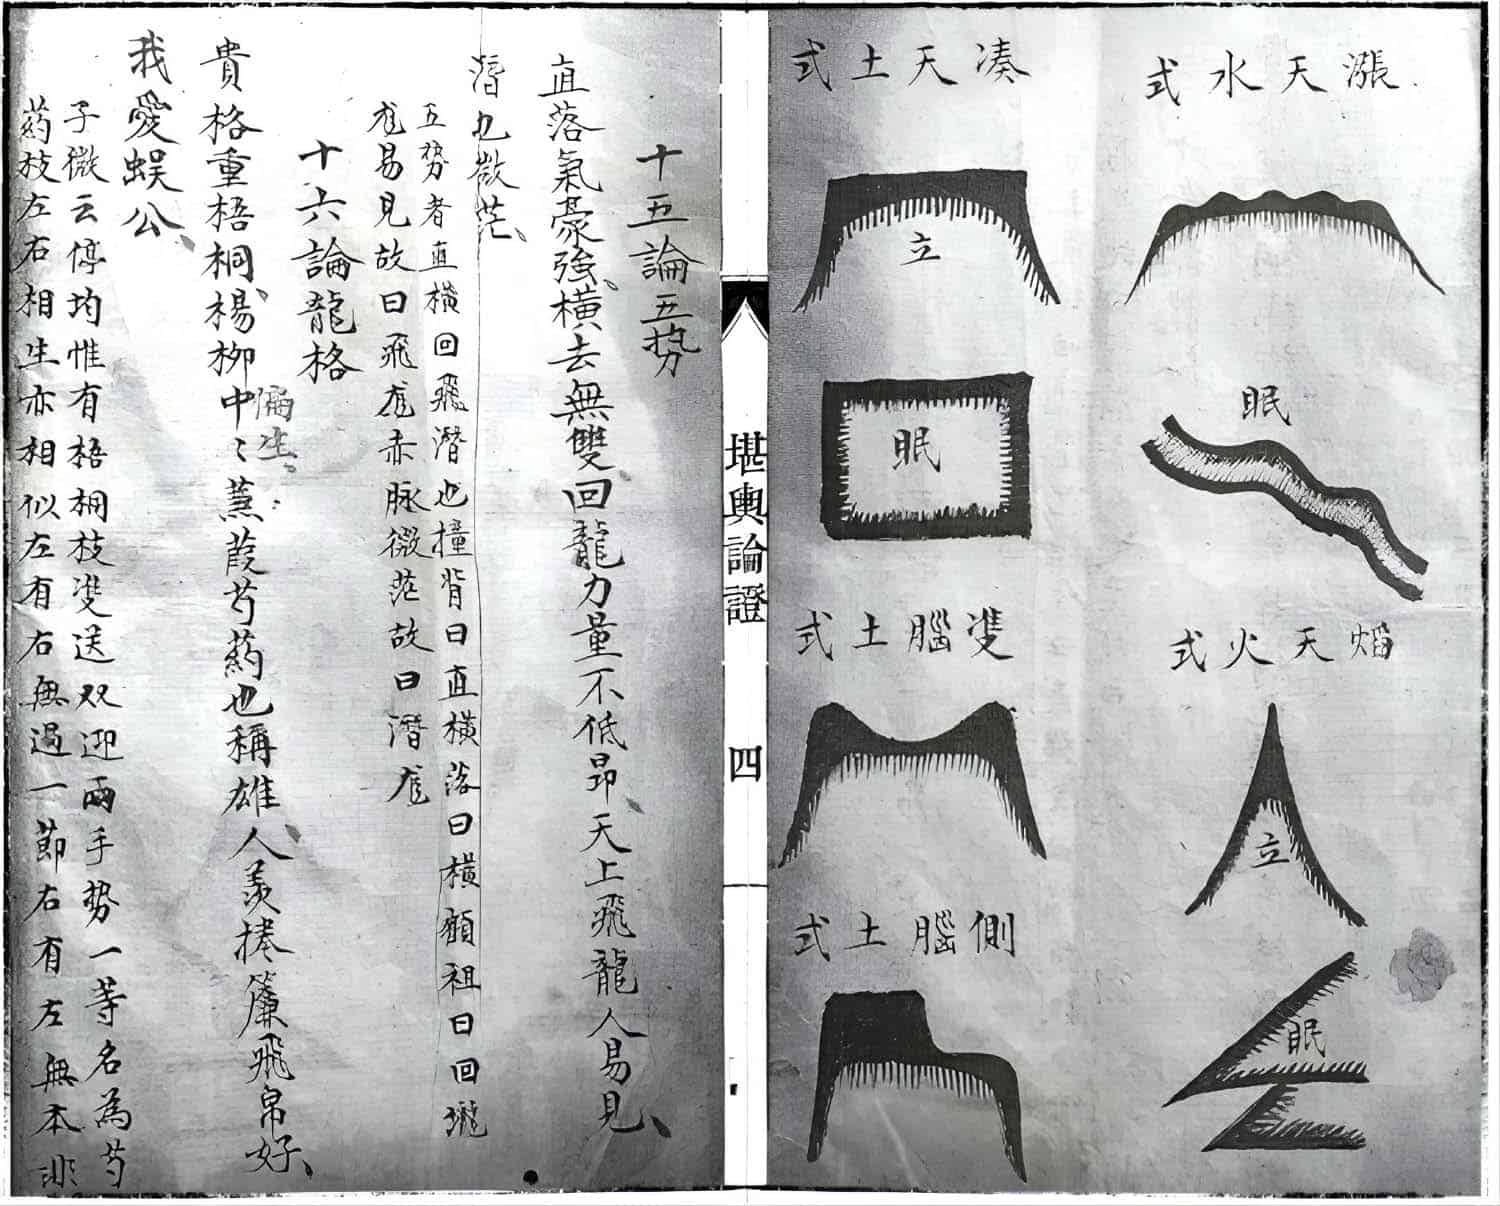 漲天水式
眠
焰天火式
立
眠
湊天土式
立
眠
雙腦土式
側腦土式
堪輿論證
四
十五論五勢
直落氣豪強橫去無雙回龍力量不低昂天上飛龍人易見
潛也微茫
五势者直橫回飛潛也撞背曰直橫落曰橫顧祖曰回
易見故曰飛 赤脉微茫故曰潛
十六論龍格
貴格重梧桐楊柳中偏生
〻蒹葭芍药也稱雄人羨捲簾飛帛好
我愛蜈公
子微云停均惟有梧桐枝雙送双迎兩手势一等名為芍
药枝左右相生亦相似左有右無過一節右有左無本非